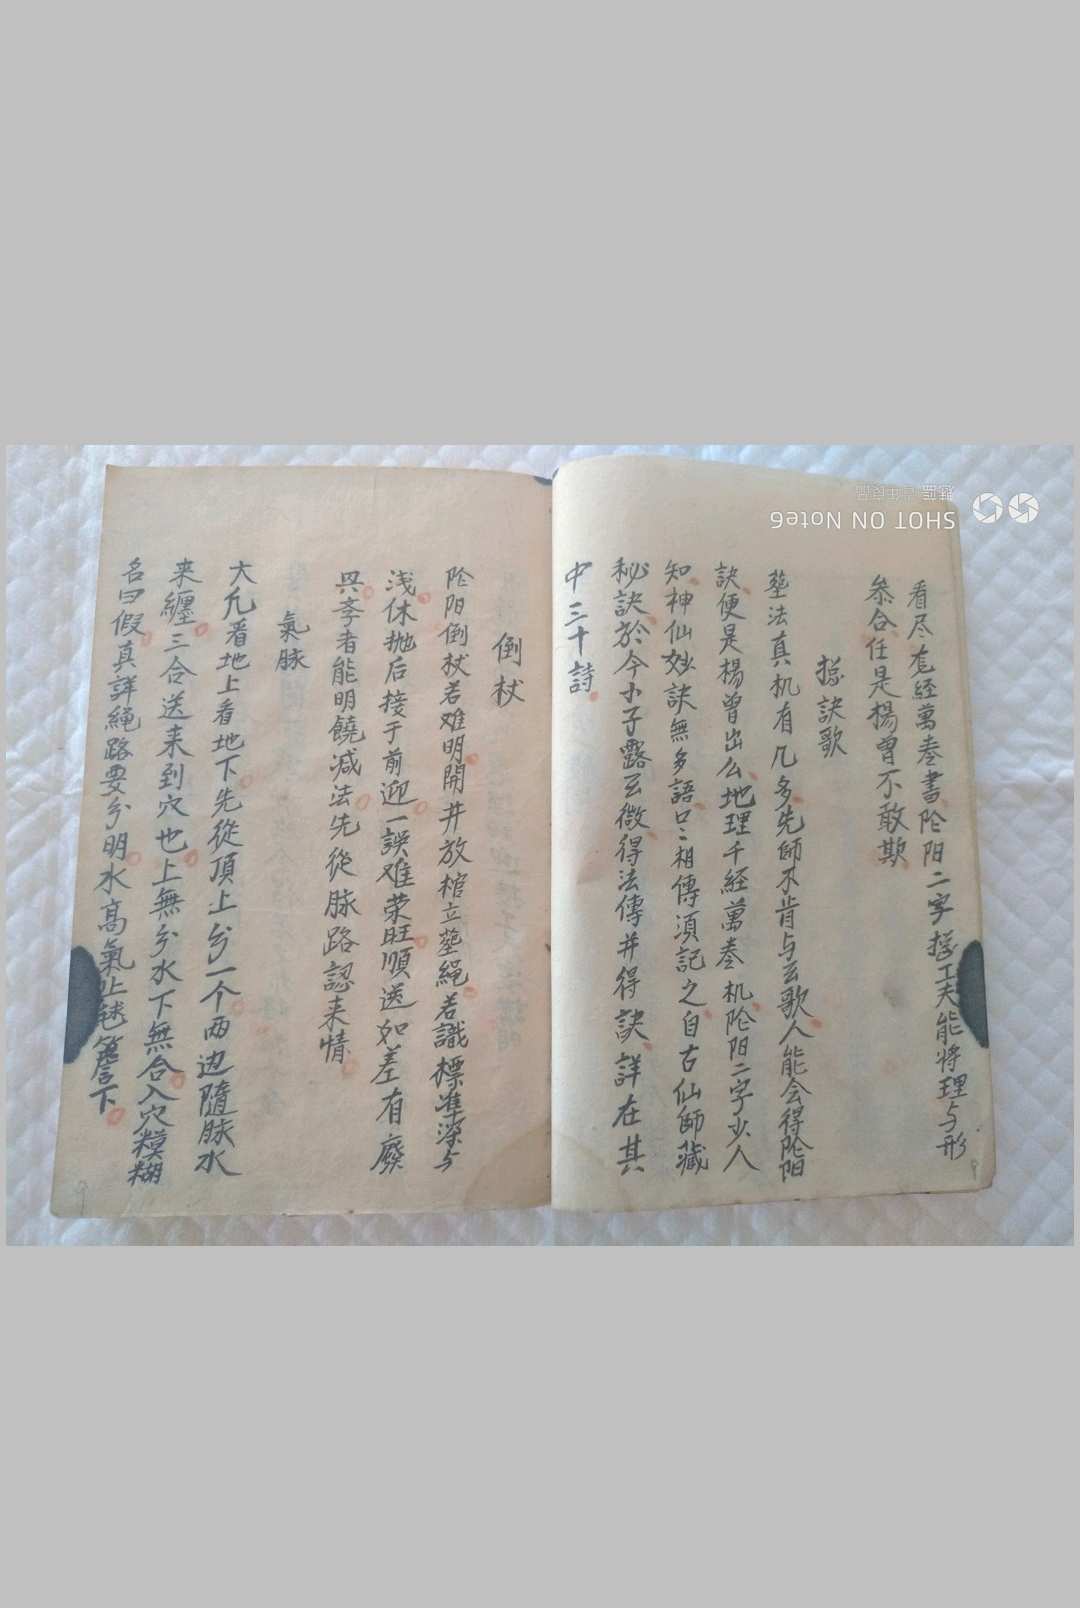 看尽千經萬卷書阴阳二字捴工夫能將理与形
叅合任是楊曾不敢欺
捴訣歌
塟法真机有几多先師不肯与玄歌人能会得阴阳
訣便是楊曾出么地理千經萬卷机阴阳二字少人
知神仙妙訣無多語口〻相傳須記之自古仙師藏
秘訣於今小子露玄微得法傳並得訣詳在其
中三十詩
倒杖
阴阳倒杖若难明開井放棺立塟繩若識標准深与
浅休抛后接于前迎一誤难荣旺順送如差有廢
興孝者能明饒减法先從脉路認来情
氣脉
大凢看地上看地下先從頂上分一个两边隨脉水
来纏三合送来到穴也上無分水下無合入穴糢糊
名曰假真詳繩路要分明水高氣止毬簷下
SHOT ON Note6